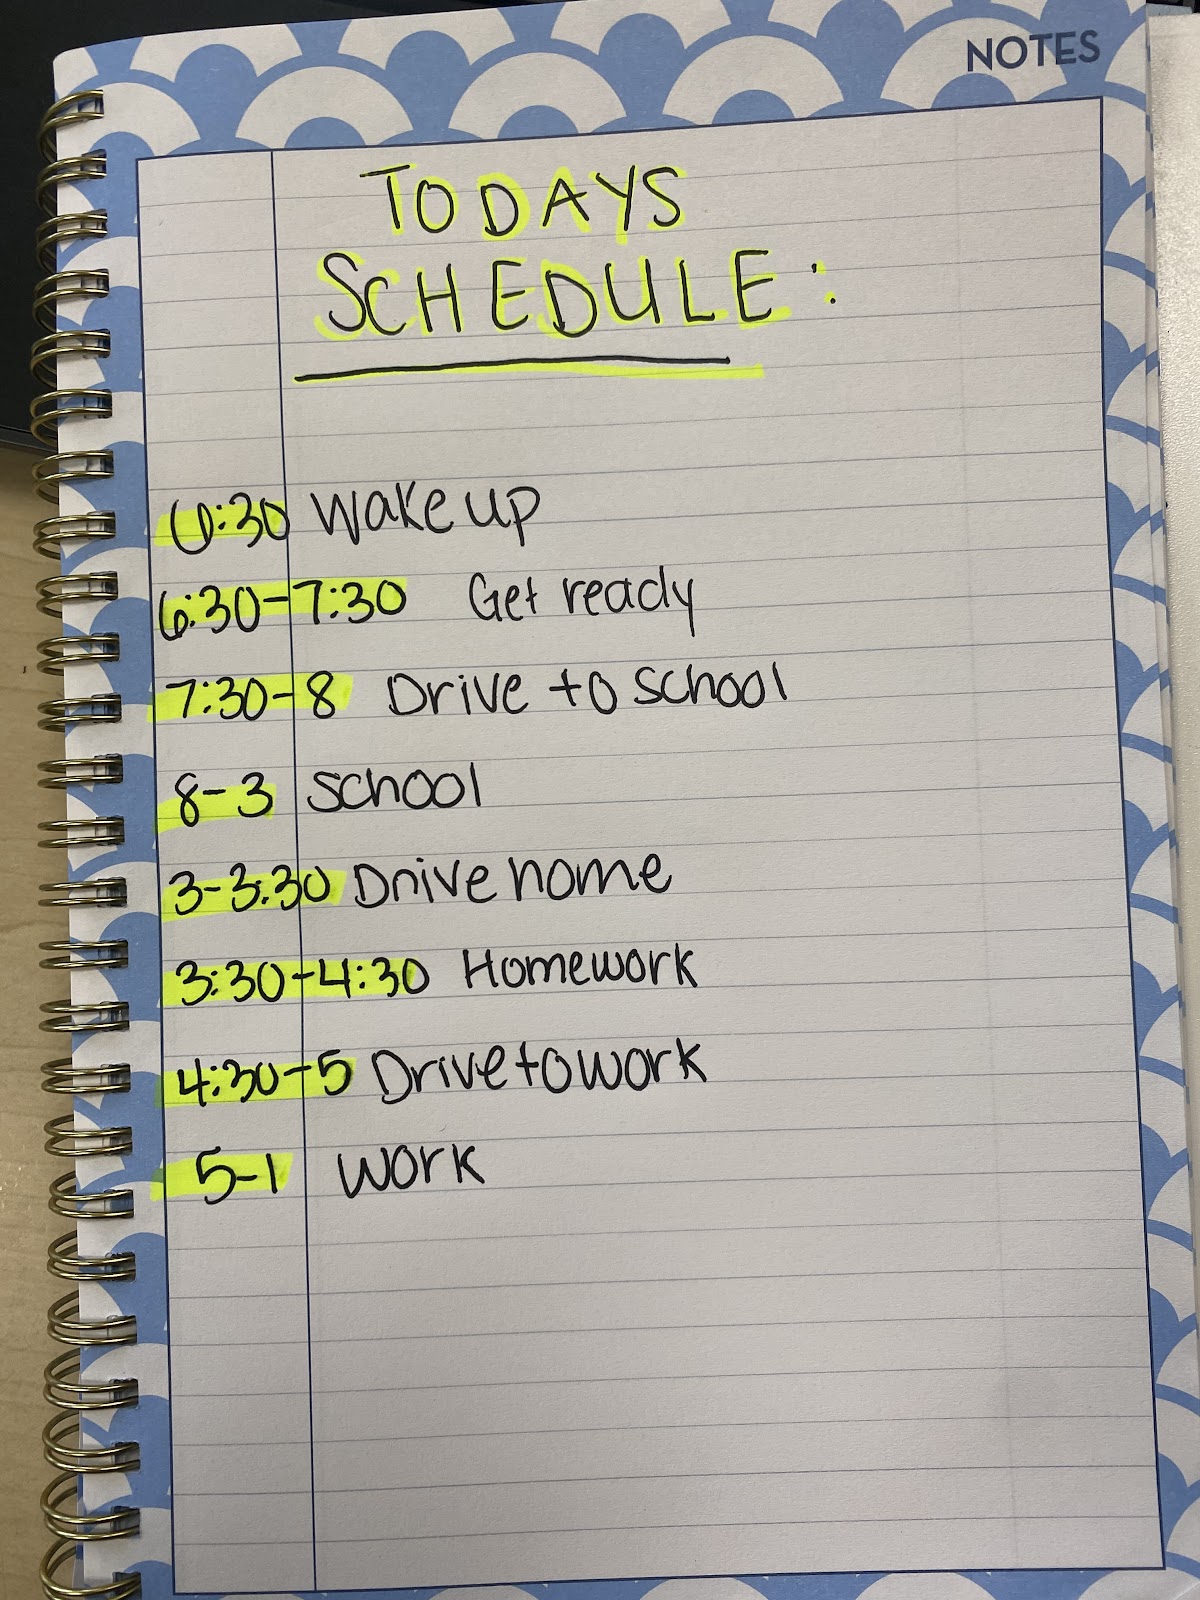 NOTES
TODAYS
SCHEDULE:
6:30 Wake up
6:30-7:30 Get ready
7:30-8 Drive to school
8-3 School
3-3:30 Drive home
3:30-4:30 Homework
4:30-5 Drive to work
5-1 Work